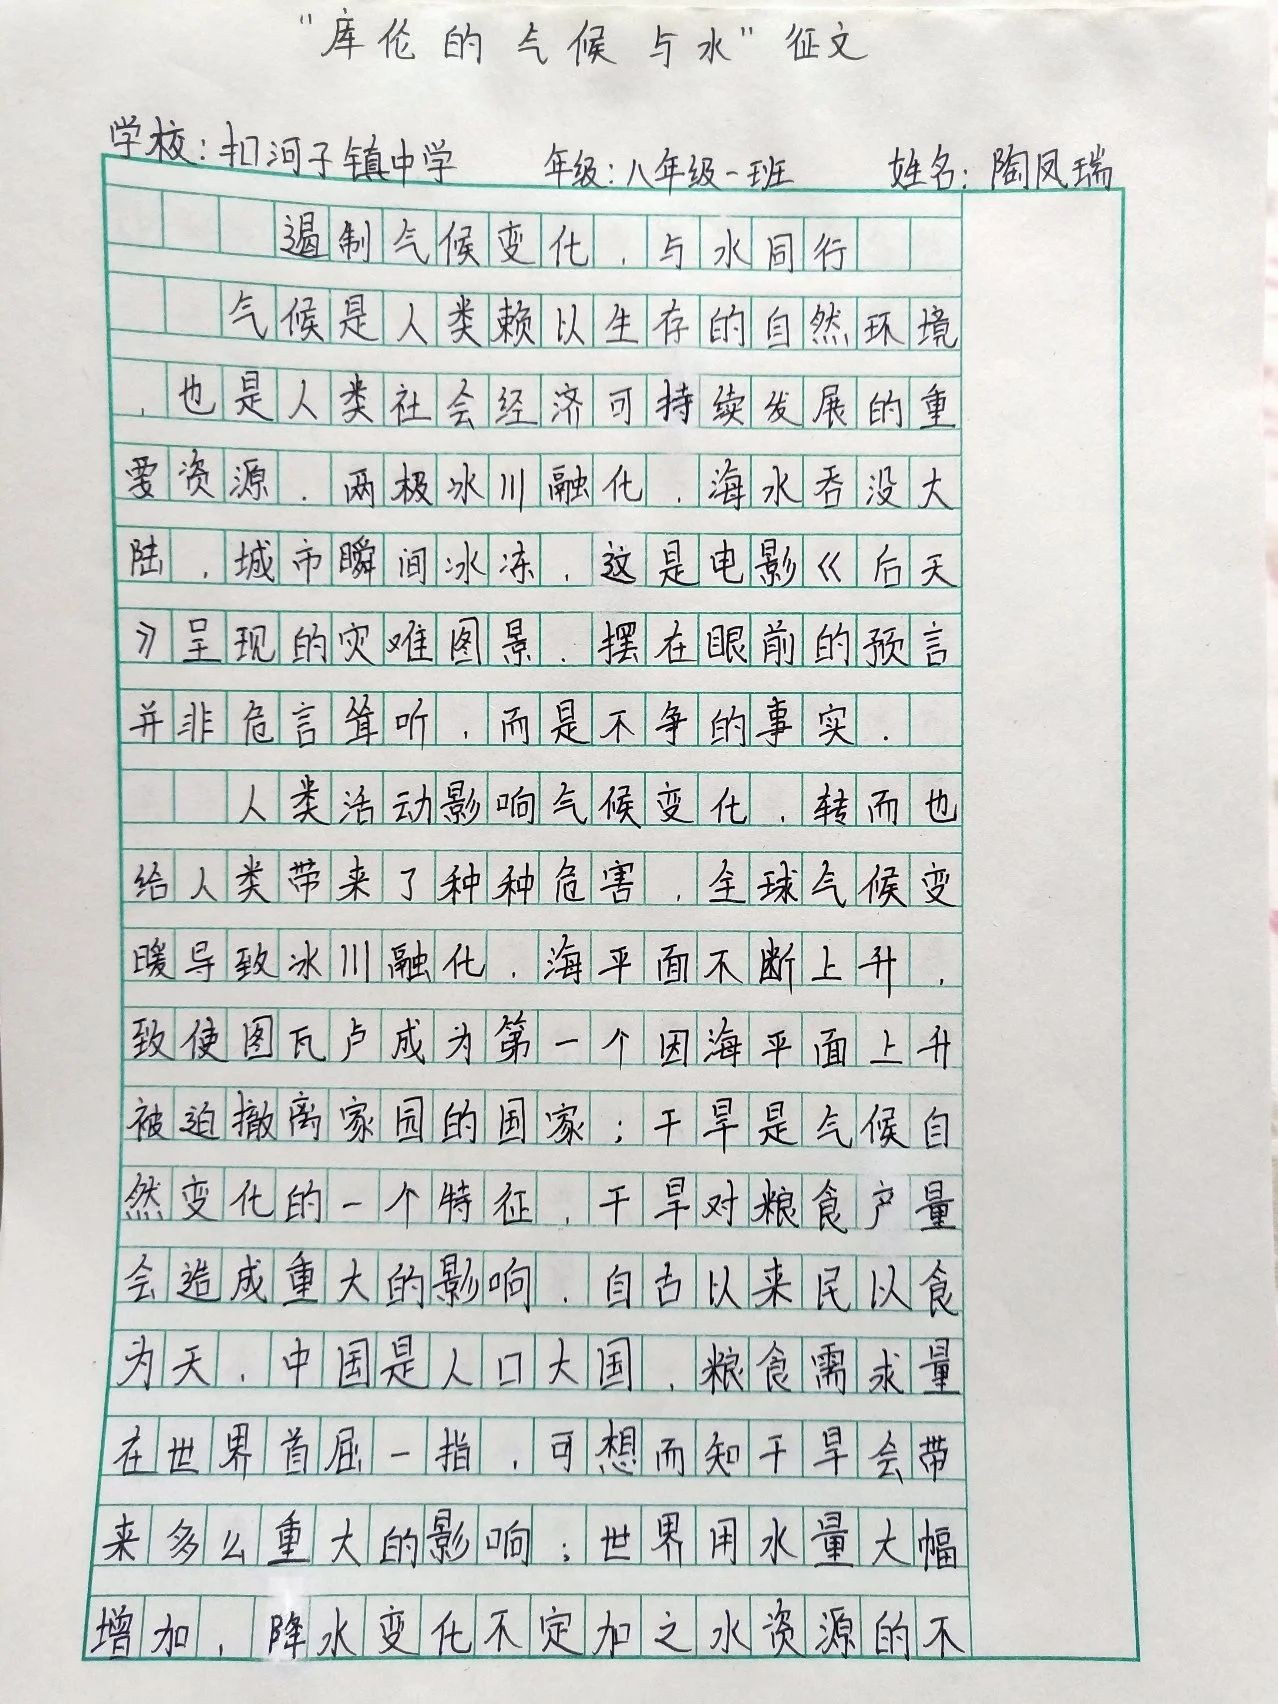 "库伦的气候与水"征文
学校：扣河子镇中学 年级：八年级一班 姓名：陶凤瑞
遏制气候变化，与水同行
气候是人类赖以生存的自然环境
，也是人类社会经济可持续发展的重
要资源．两极冰川融化，海水吞没大
陆，城市瞬间冰冻，这是电影《后天
》呈现的灾难图景．摆在眼前的预言
并非危言耸听，而是不争的事实．
人类活动影响气候变化，转而也
给人类带来了种种危害，全球气候变
暖导致冰川融化，海平面不断上升，
致使图瓦卢成为第一个因海平面上升
被迫撤离家园的国家；干旱是气候自
然变化的一个特征，干旱对粮食产量
会造成重大的影响．自古以来民以食
为天，中国是人口大国，粮食需求量
在世界首屈一指，可想而知干旱会带
来多么重大的影响；世界用水量大幅
增加，降水变化不定加之水资源的不